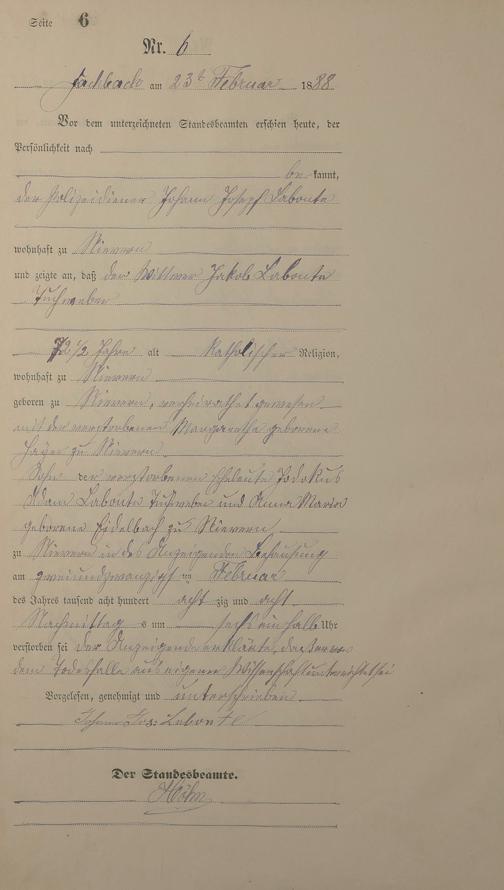 Seite 6
Nr. 6
Fachbach am 23t Februar 1888
Vor dem unterzeichneten Standesbeamten erschien heute, der
Persönlichkeit nach
be kannt,
der Polizeidiener Johann Joseph Labonte
wohnhaft zu Nievern
und zeigte an, daß der Wittwer Jakob Labonte
Tuchweber
72 1/2 Jahre alt katholischer Religion,
wohnhaft zu Nievern
geboren zu Nievern, verheirathet gewesen
mit der verstorbenen Margaretha geborene
zu Nievern
Sohn der verstorbenen Eheleute Jodokus
Adam Labonte Tuchweber und Anna Maria
geborene Eidelbach zu Nievern
zu Nievern in des Anzeigenden Behausung
am zweiundzwanzigst en Februar
des Jahres tausend acht hundert acht zig und acht
Nachmittag s um sechs einhalb Uhr
verstorben sei der Anzeigende erklärte, daß er von
dem Todesfalle aus eigener Wissenschaft unterrichtet sei
Vorgelesen, genehmigt und unterschrieben
Johann Jos: Labonte
Der Standesbeamte.
Höhn